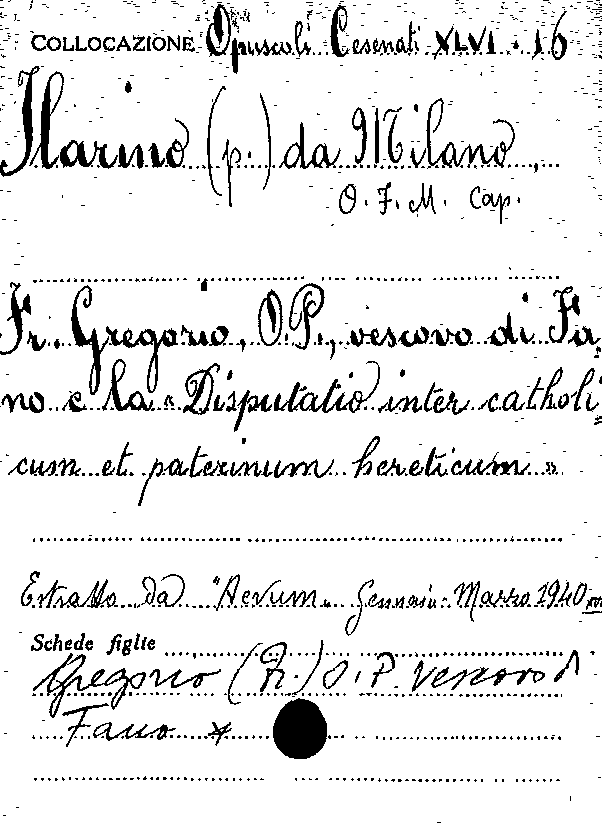 COLLOCAZIONE Opuscoli Cesenati XLVI. 16
Ilarino (p.) da Milano,
O. F. M. Cap.
Fr. Gregorio, O.P., vescovo di Fa=
no e la « Disputatio inter catholi=
cum et paterinum hereticum »
Estratto da "Aevum" Gennaio-Marzo 1940
Schede figlie
Gregorio (Fr.) O. P. Vescovo di
Fano *